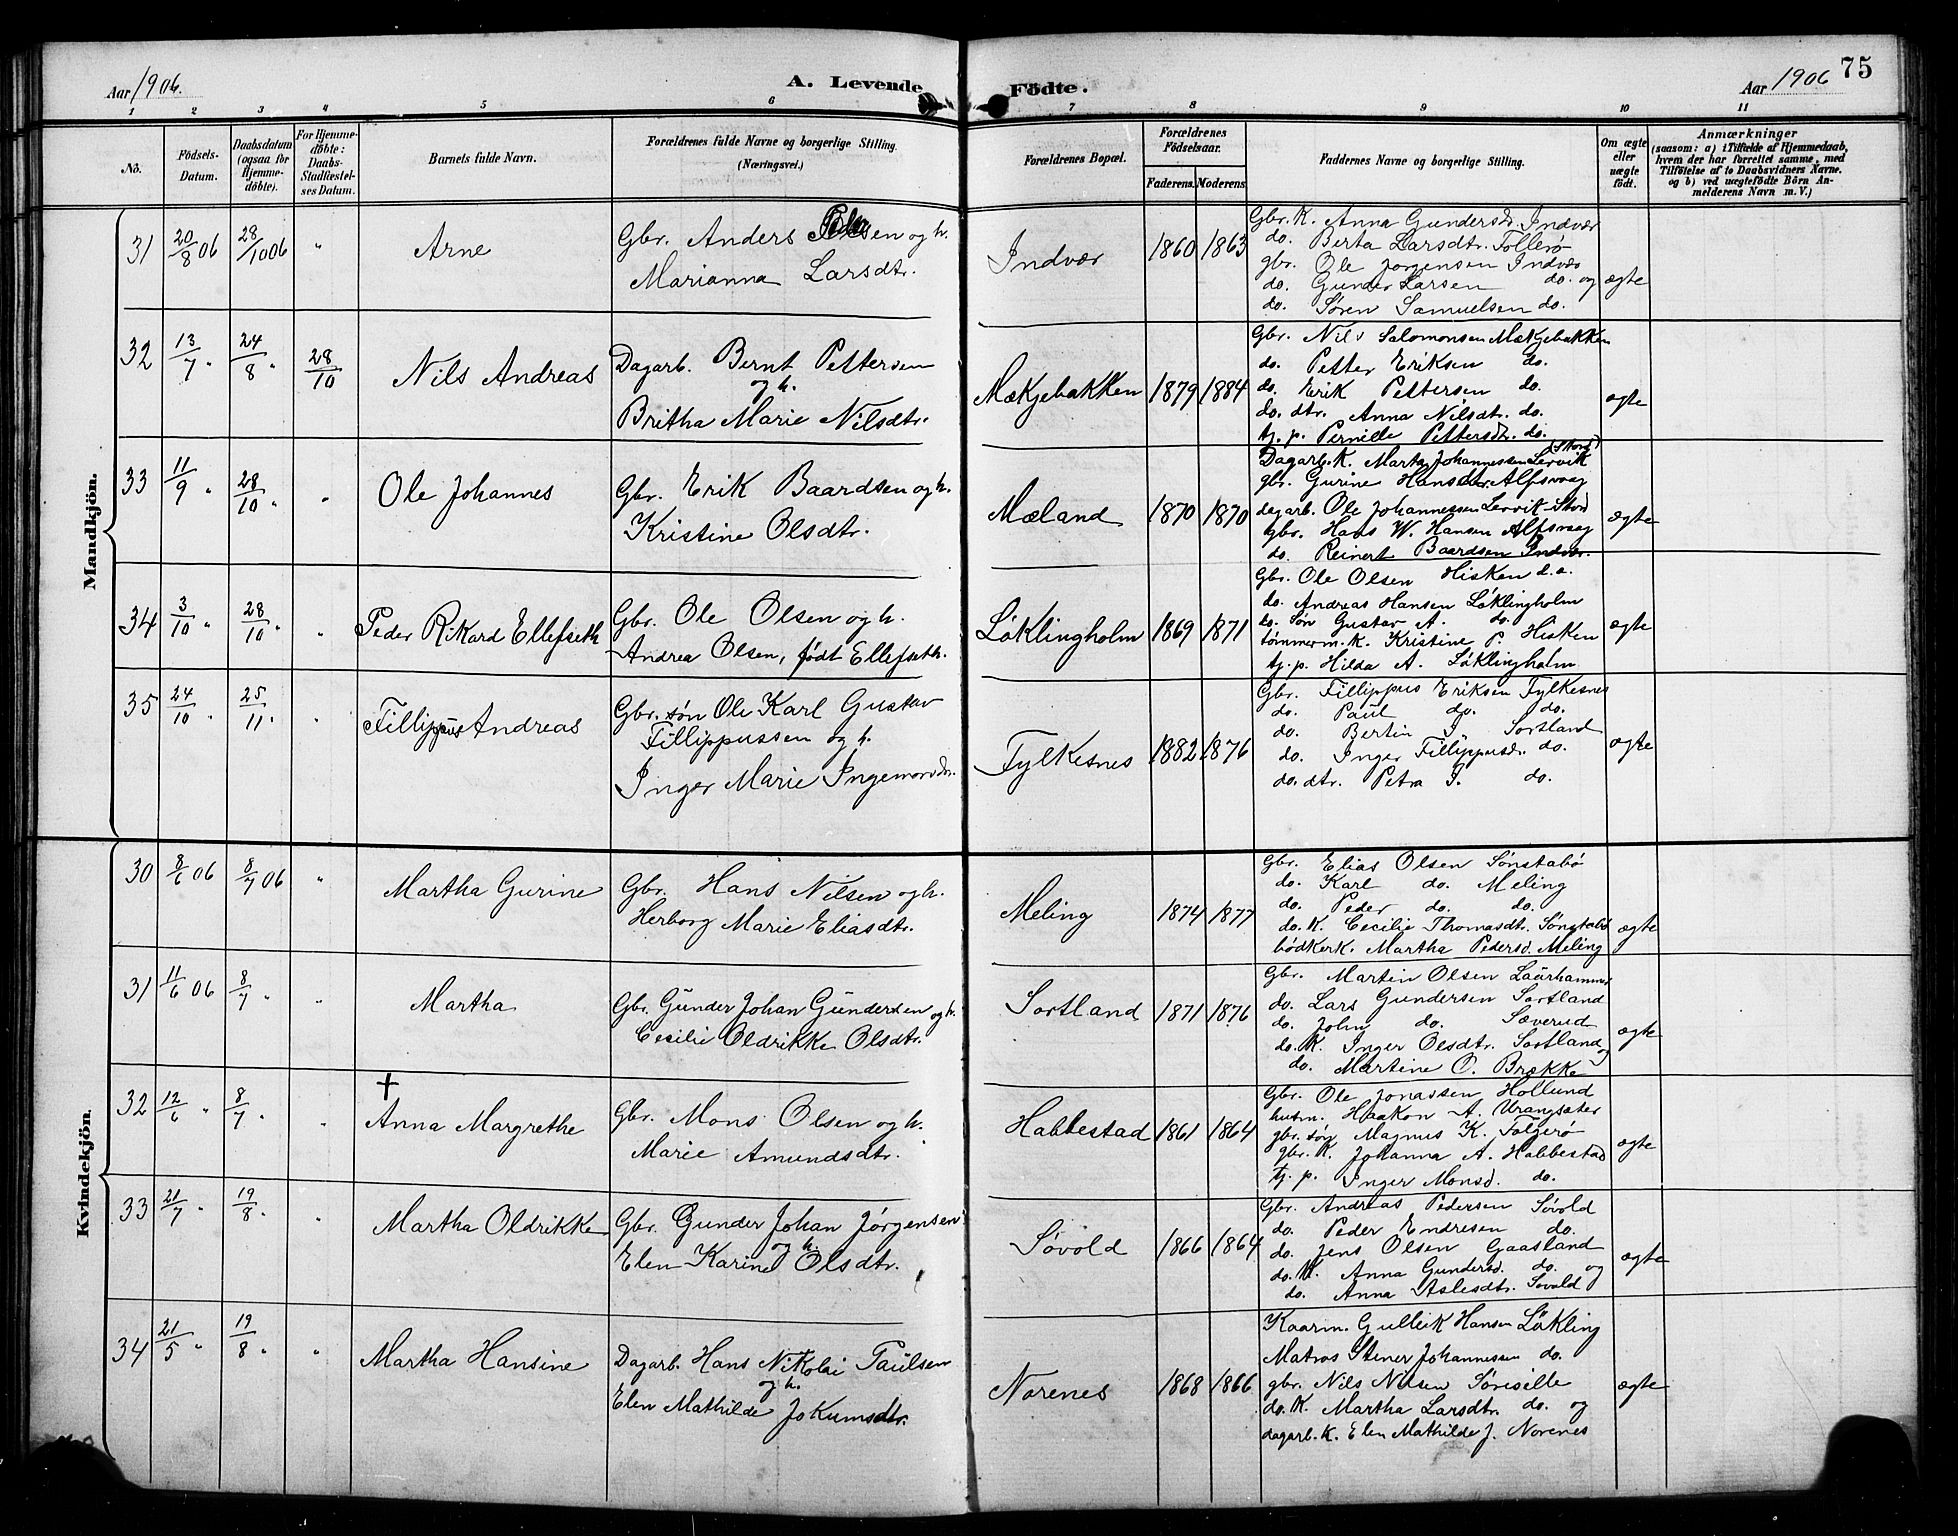 Aar 1906.
A. Levende
Födte.
Aar 1906
75
1 2 3 4 5 6 7 8 9 10 11
No.
Födsels-
Datum.
Daabsdatum
(ogsaa för
Hjemme-
döbte).
For Hjemme-
döbte:
Daabs-
Stadfæstel-
ses Datum.
Barnets fulde Navn.
Forældrenes fulde Navne og borgerlige Stilling.
(Næringsvei.)
Forældrenes Bopæl.
Forældrenes
Födselsaar.
Faderens. Moderens.
Faddernes Navne og borgerlige Stilling.
Om ægte
eller
uægte
födt.
Anmærkninger
(saasom: a) i Tilfælde af Hjemmedaab,
hvem der har forrettet samme, med
Tilföielse af to Daabsvidners Navne.
og b) ved uægtefödte Börn An-
melderens Navn m. V.)
Mandkjön.
31 20/8 06 28/10 06 " Arne
Gbr. Anders Olsen og h.
Marianna Larsdtr.
Indvær 1860 1863
Gbr. K. Anna Gundersdr. Indvær
do. Berta Larsdtr. Follerø
gbr. Ole Jørgensen Indvær
do. Gunder Larsen do. og
do. Søren Samuelsen do.
ægte
32 13/7 " 24/8 " 28/10 Nils Andreas
Dagarb. Bernt Pettersen
og h.
Britha Marie Nilsdtr.
Mækjebakken 1879 1884
Gbr. Nils Salomonsen Mækjebakken
do. Petter Eriksen do.
do. Erik Pettersen do.
do. dtr. Anna Nilsdtr. do.
tj. p. Pernille Pettersdr. do.
ægte
33 11/9 " 28/10 " " Ole Johannes
Gbr. Erik Baardsen og h.
Kristine Olsdtr.
Mæland 1870 1870
(Stord)
Dagarb. K. Marta Johannessen Lervik
gbr. Gurine Hansdtr. Alfsvaag
dagarb. Ole Johannessen Lervik Stord
gbr. Hans W. Hansen Alfsvaag
do. Reinert Baardsen Indvær.
ægte
34 3/10 " 28/10 " " Peder Rikard Ellefseth
Gbr. Ole Olsen og h.
Andrea Olsen, født Ellefseth.
Løklingholm 1869 1871
Gbr. Ole Olsen Hisken d.a.
do. Andreas Hansen Løklingholm
do. søn Gustav A. do.
tømmerm. K. Kristine P. Hisken
tj. p. Hilda A. Løklingholm
ægte
35 24/10 " 25/11 " " Fillippus Andreas
Gbr. søn Ole Karl Gustav
Fillippussen og h.
Inger Marie Ingemorsdr.
Fylkesnes 1882 1876
Gbr. Fillippus Eriksen Fylkesnes
do. Paul do. do.
do. Bertin I. Sortland
do. Inger Fillippusdr. do.
do. dtr. Petra I. do.
ægte
Kvindekjön.
30 8/6 06 8/7 06 " Martha Gurine
Gbr. Hans Nilsen og h.
Herborg Marie Eliasdtr.
Meling 1874 1877
Gbr. Elias Olsen Sønstabø
do. Karl do. Meling
do. Peder do. do.
do. K. Cecilie Thomasdtr. Sønstabø
bødkerk. Martha Pedersd. Meling
ægte
31 11/6 06 8/7 " " Martha
Gbr. Gunder Johan Gundersen og h.
Cecilie Oldrikke Olsdtr.
Sortland 1871 1876
Gbr. Martin Olsen Laurhammer
do. Lars Gundersen Sortland
do. John do. Sæverud
do. K. Inger Olsdtr. Sortland og
do. Martine O. Brække
ægte
†
32 12/6 " 8/7 " " Anna Margrethe
Gbr. Mons Olsen og h.
Marie Amundsdtr.
Habbestad 1861 1864
Gbr. Ole Jonassen Hollund
husm. Haakon A. Urangsæter
gbr. søn Magnus K. Folgerø
gbr. K. Johanna A. Habbestad
tj. p. Inger Monsd. do.
ægte
33 21/7 " 19/8 " " Martha Oldrikke
Gbr. Gunder Johan Jørgensen
og h.
Elen Karine Olsdtr.
Søvold 1866 1864
Gbr. Andreas Pedersen Søvold
do. Peder Endresen do.
do. Jens Olsen Gaasland
do. K. Anna Gundersd. do. og
do. Anna Aslesdtr. Søvold
ægte
34 21/5 " 19/8 " " Martha Hansine
Dagarb. Hans Nikolai Paulsen
og h.
Elen Mathilde Jokumsdtr.
Norenes 1868 1866
Kaarm. Gullik Hansen Løkling
Matros Stener Johannessen do.
gbr. Nils Nilsen Sørisille
do. K. Martha Larsdtr. do. og
dagarb. K. Elen Mathilde J. Norenes
ægte